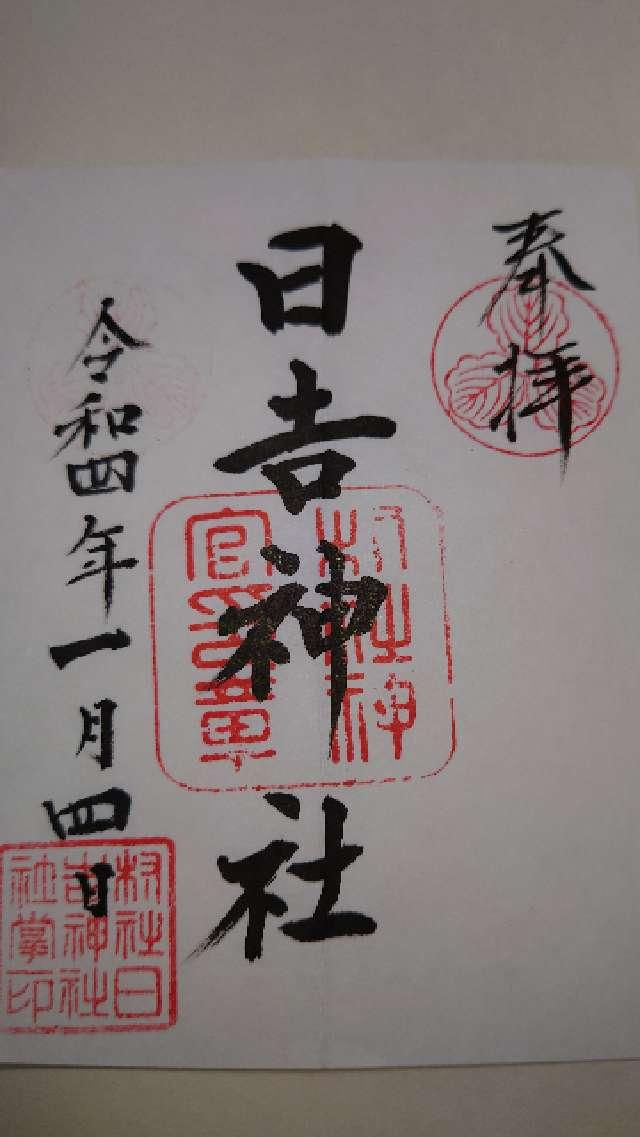 奉拝
日吉神社
令和四年一月四日
村社神
官之章
村社日
吉神社
社掌印